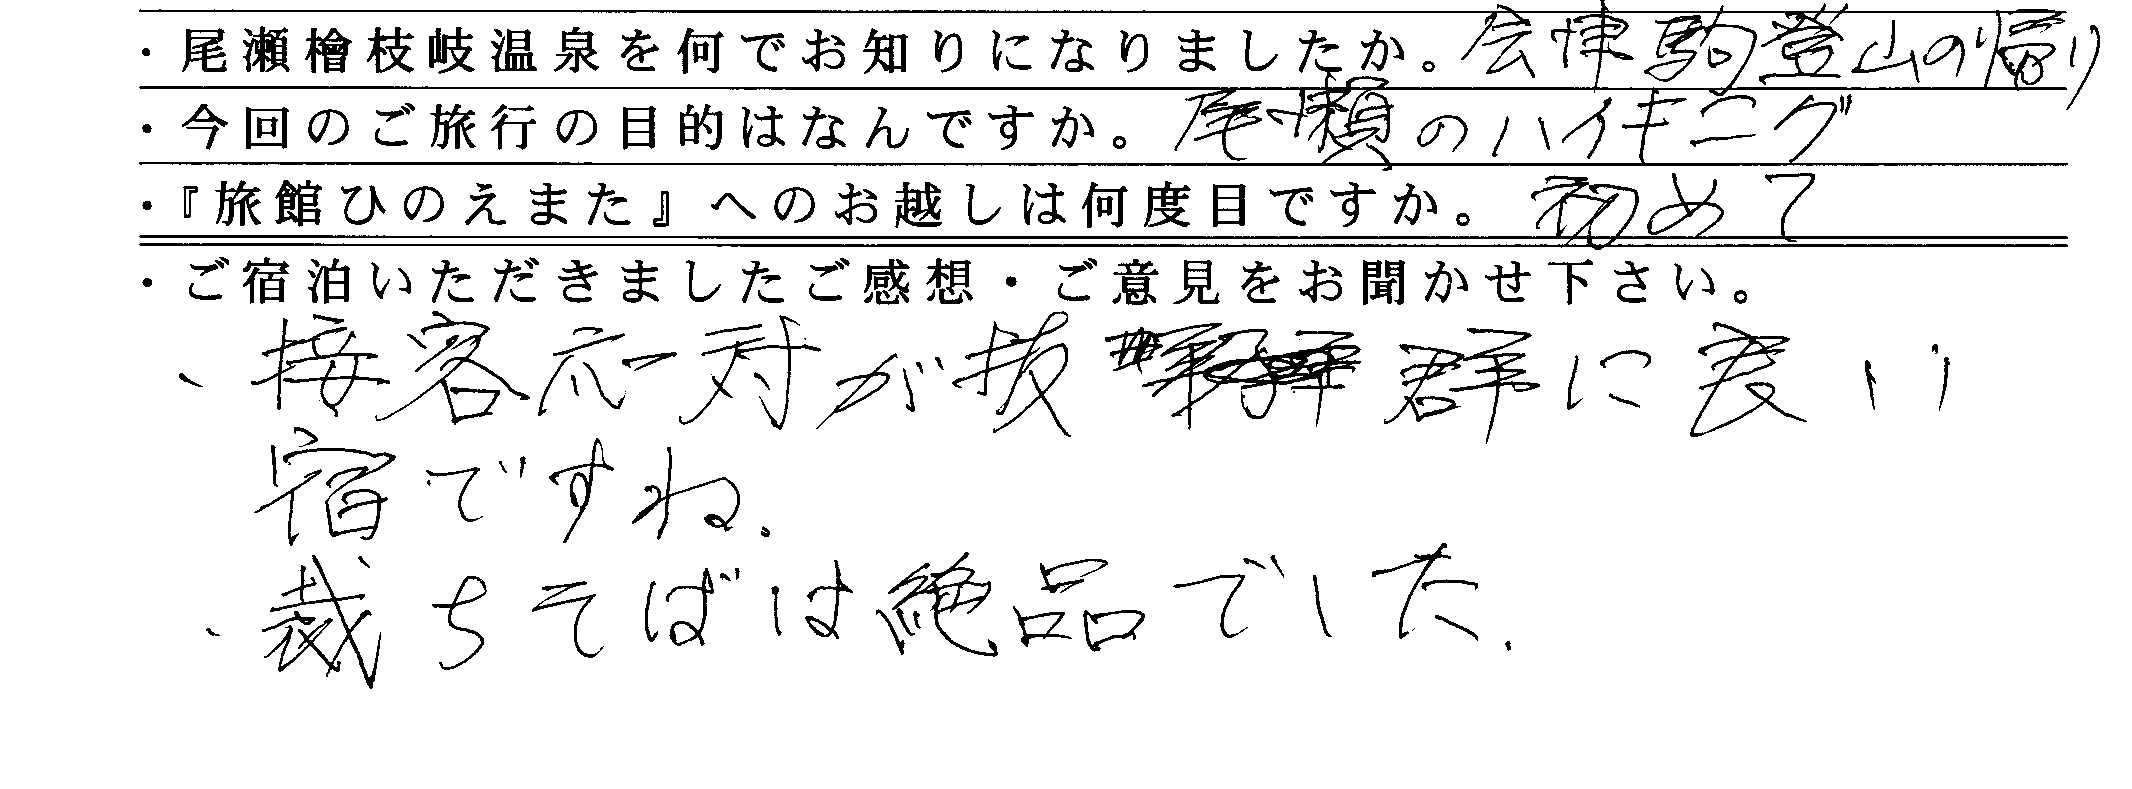 ・尾瀬檜枝岐温泉を何でお知りになりましたか。会津駒登山の帰り
・今回のご旅行の目的はなんですか。尾瀬のハイキング
・『旅館ひのえまた』へのお越しは何度目ですか。初めて
・ご宿泊いただきましたご感想・ご意見をお聞かせ下さい。
、接客応対が抜群に良い
宿ですね.
・裁ちそばは絶品でした.